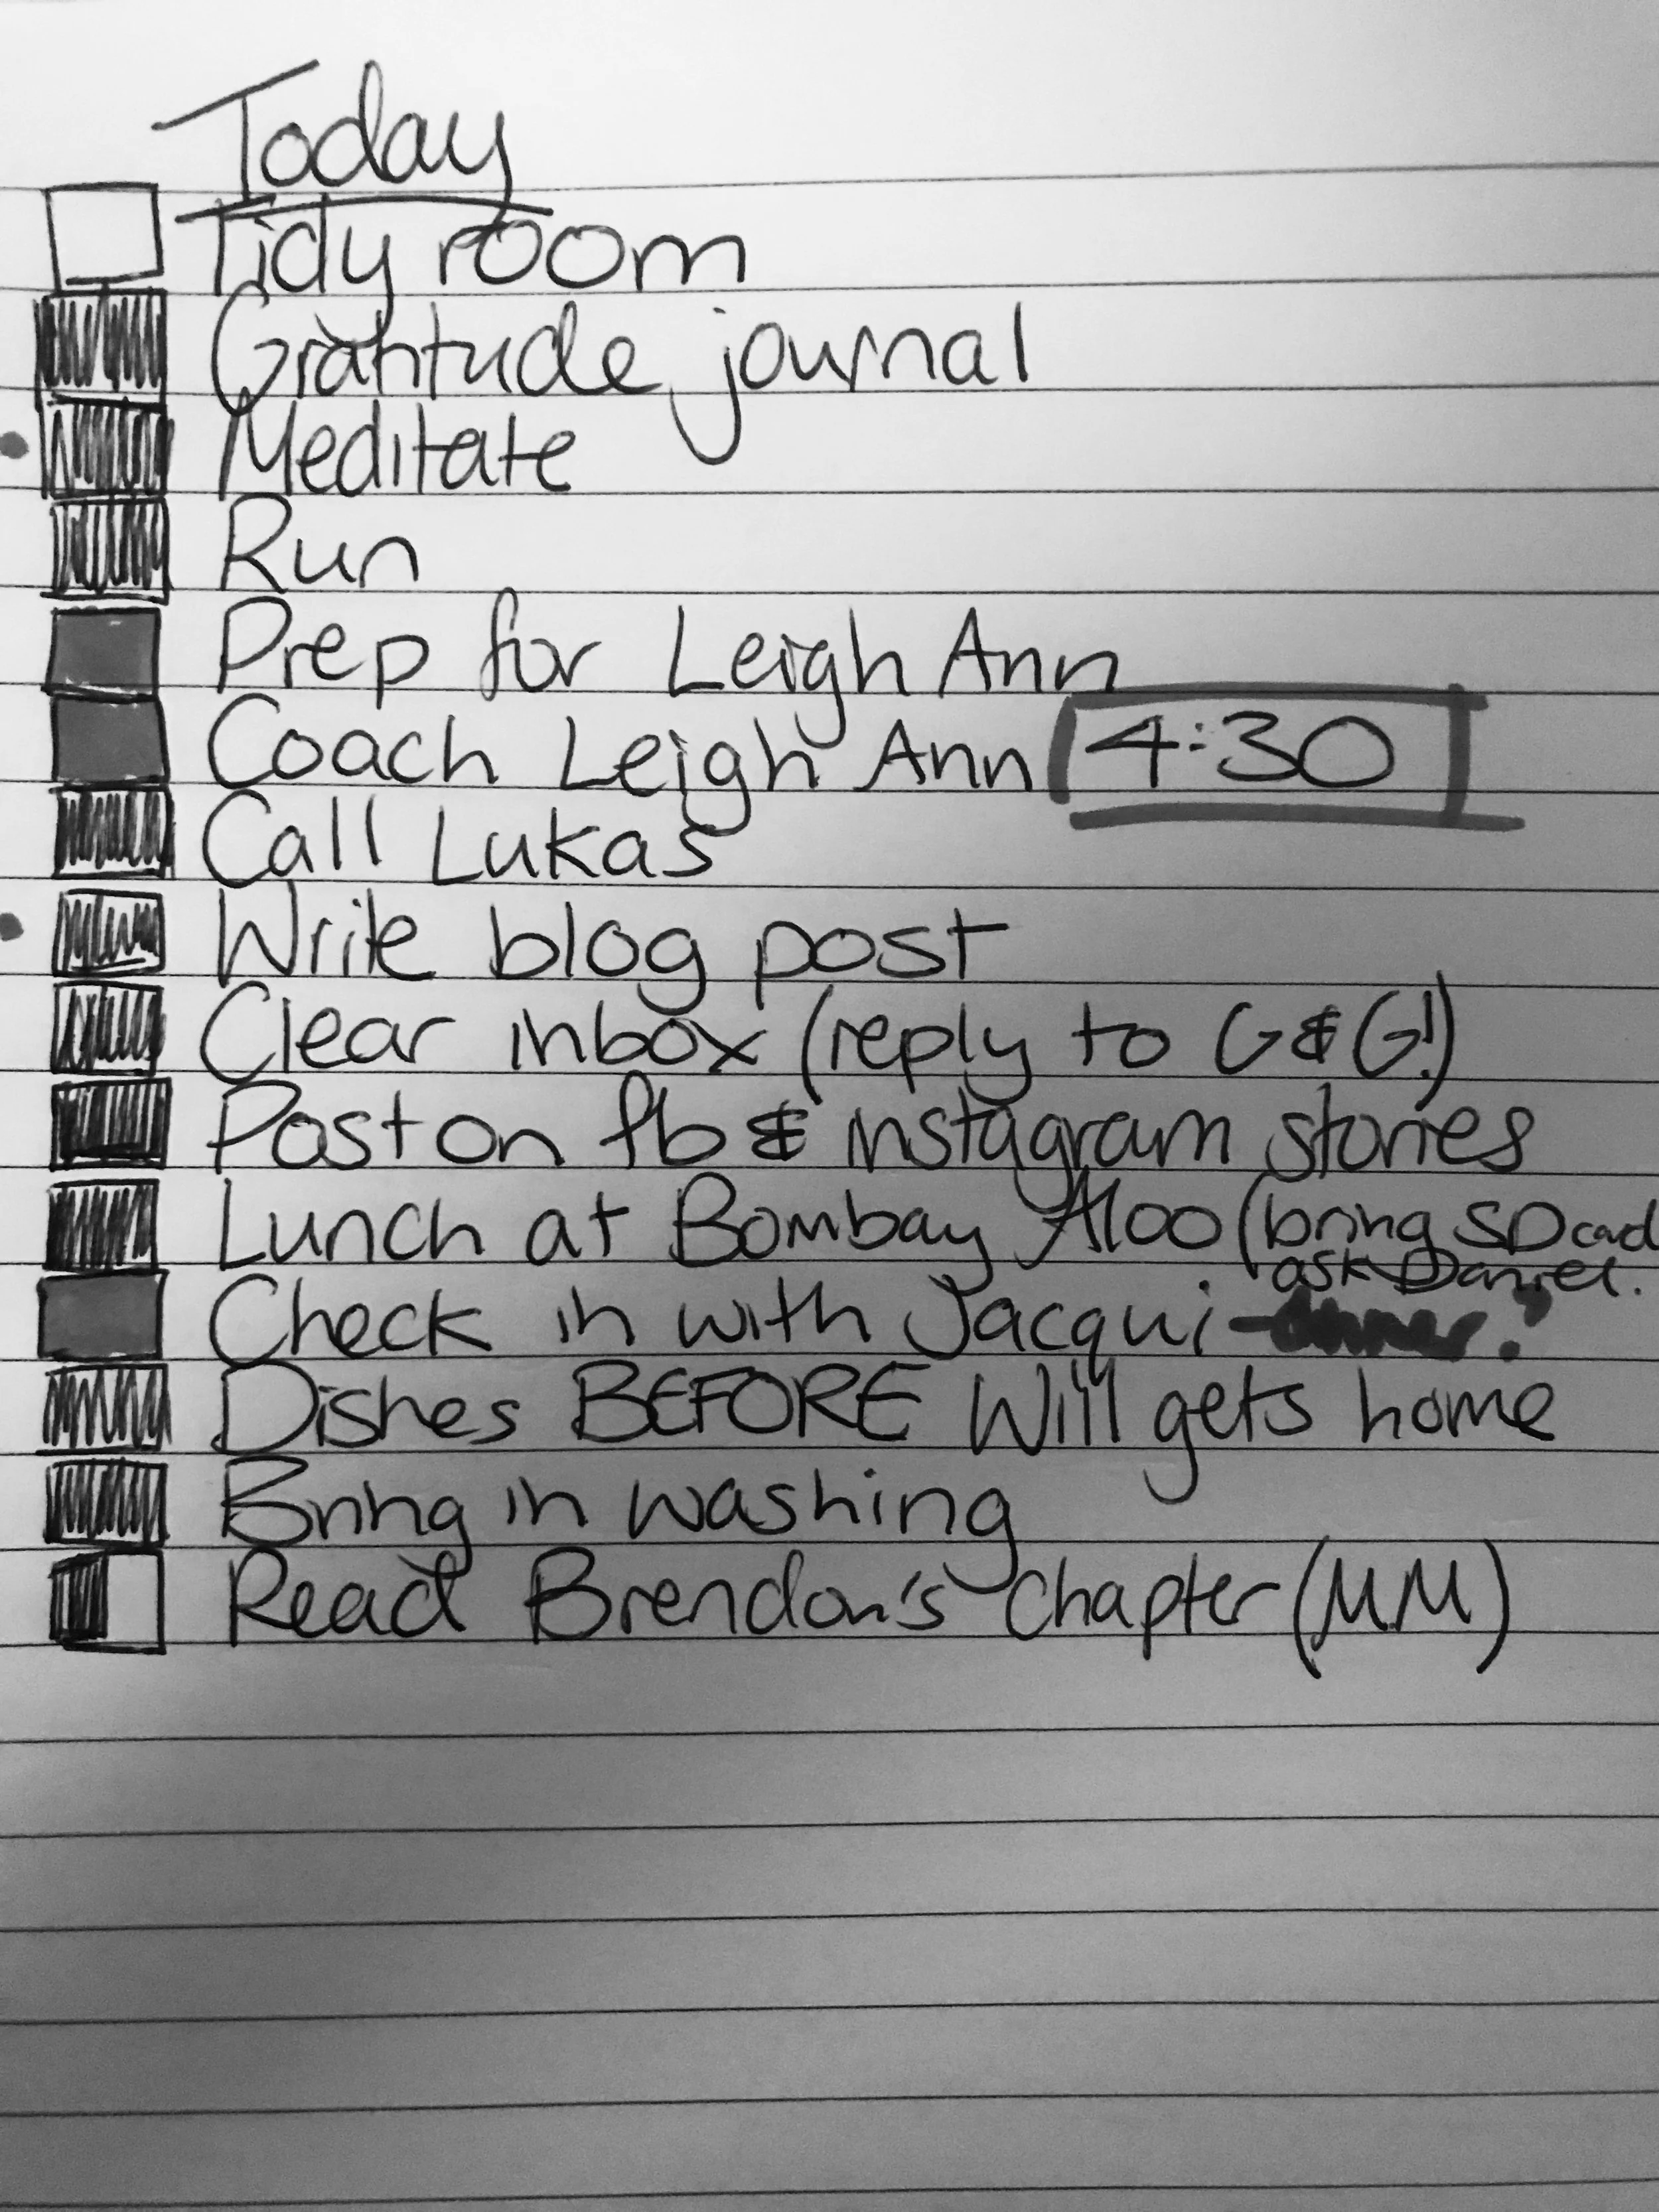 Today
Tidy room
Gratitude journal
Meditate
Run
Prep for Leigh Ann
Coach Leigh Ann 4:30
Call Lukas
Write blog post
Clear inbox (reply to G & G!)
Post on fb & instagram stories
Lunch at Bombay Aloo (bring SD card
ask Daniel.
Check in with Jacqui - dinner?
Dishes BEFORE Will gets home
Bring in washing
Read Brendon's Chapter (M.M)